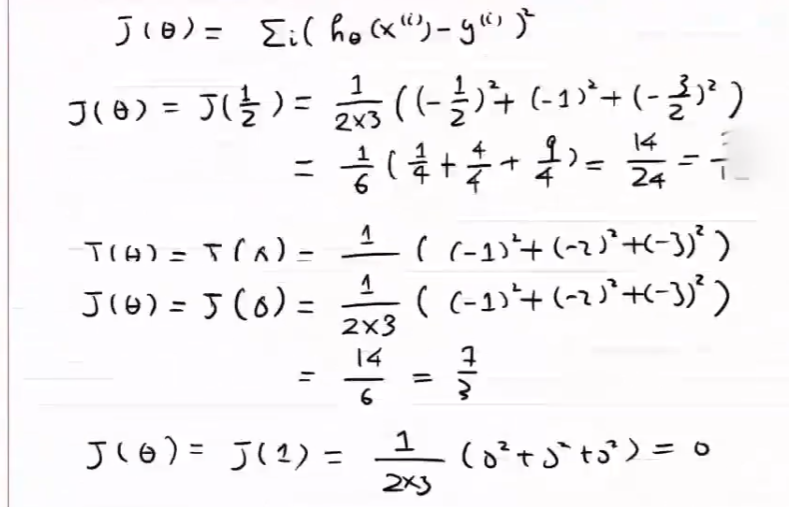 J(θ) = Σi( hθ(x⁽ⁱ⁾) - y⁽ⁱ⁾ )²
J(θ) = J(1/2) = 1/2×3 ((-1/2)² + (-1)² + (-3/2)²)
= 1/6 (1/4 + 4/4 + 9/4) = 14/24 =
J(θ) = J( ) = 1/ ( (-1)² + (-2)² + (-3)² )
J(θ) = J(0) = 1/2×3 ( (-1)² + (-2)² + (-3)² )
= 14/6 = 7/3
J(θ) = J(1) = 1/2×3 (0² + 0² + 0²) = 0